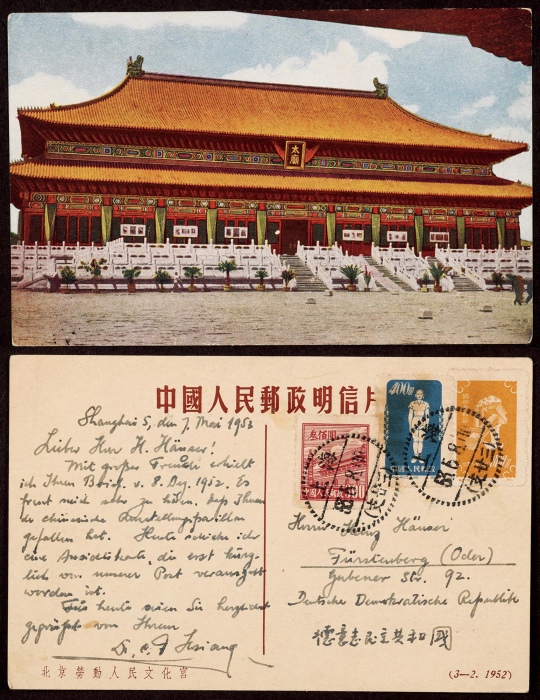 太廟
中國人民郵政明信片
Shanghai 5, den 7. Mai 1953
Lieber Herr H. Häuser!
Mit großer Freude erhielt
ich Ihren Brief v. 8. Dez. 1952. Es
freut mich sehr zu hören, dass Ihnen
der chinesische Ausstellungspavillon
gefallen hat. Heute schicke ich
eine Ansichtskarte, die erst kürz-
lich von unserer Post verausgabt
worden ist.
Für heute seien Sie herzlichst
gegrüsst von Ihrem
Hsiang
叁佰圓
300
中國人民郵政
400圓
中國人民郵政
上海
Herrn Heinz Häuser
Fürstenberg (Oder)
Gubener Str. 92.
Deutsche Demokratische Republik
德意志民主共和國
北京勞動人民文化宮
(3—2. 1952)